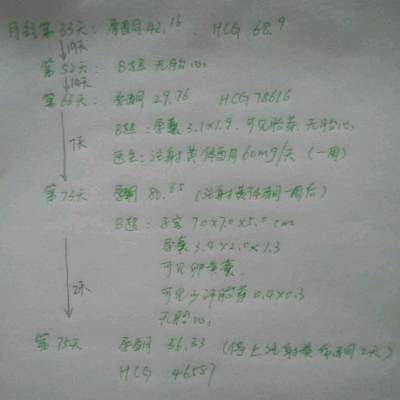 月经第33天：孕酮42.16 . HCG 68.9
19天
第52天： B超 无胎心.
14天
第66天： 孕酮 29.76 HCG 78616
B超：孕囊 3.1×1.9. 可见胎芽. 无胎心.
7天
医生：注射黄体酮60mg/天（一周）
第73天 孕酮 80.65（注射黄体酮一周后）
B超：子宫 70×70×5.0 cm
孕囊 3.4×2.0×1.3
可见卵黄囊.
2天
可见 胚芽 0.4×0.3
无胎心.
第75天 孕酮 36.33（停止注射黄体酮2天）
HCG 46587